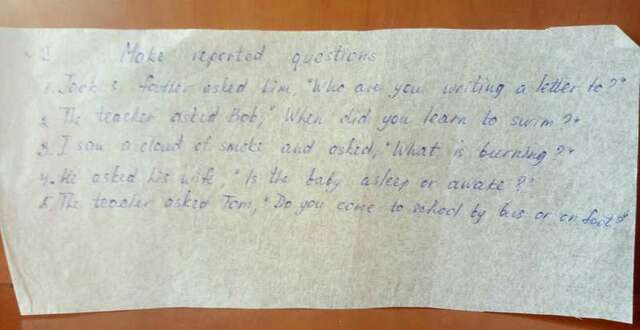 I Make reported questions
1. Jack's father asked him, "Who are you writing a letter to?"
2. The teacher asked Bob, "When did you learn to swim?"
3. I saw a cloud of smoke and asked, "What is burning?"
4. He asked his wife, "Is the baby asleep or awake?"
5. The teacher asked Tom, "Do you come to school by bus or on foot?"